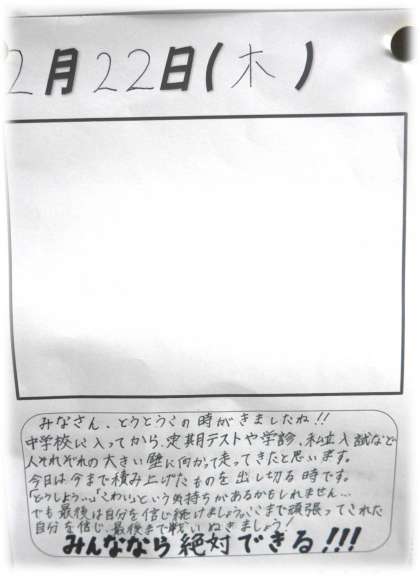 2月22日(木)
みなさん、とうとうこの時がきましたね!!
中学校に入ってから、定期テストや学診、私立入試など
人それぞれの大きい壁に向かって走ってきたと思います。
今日は今まで積み上げたものを出し切る時です。
「どうしよう…」「こわい」という気持ちがあるかもしれません…
でも最後は自分を信じ続けましょう。ここまで頑張ってくれた
自分を信じ、最後まで戦いぬきましょう!
みんななら絶対できる!!!